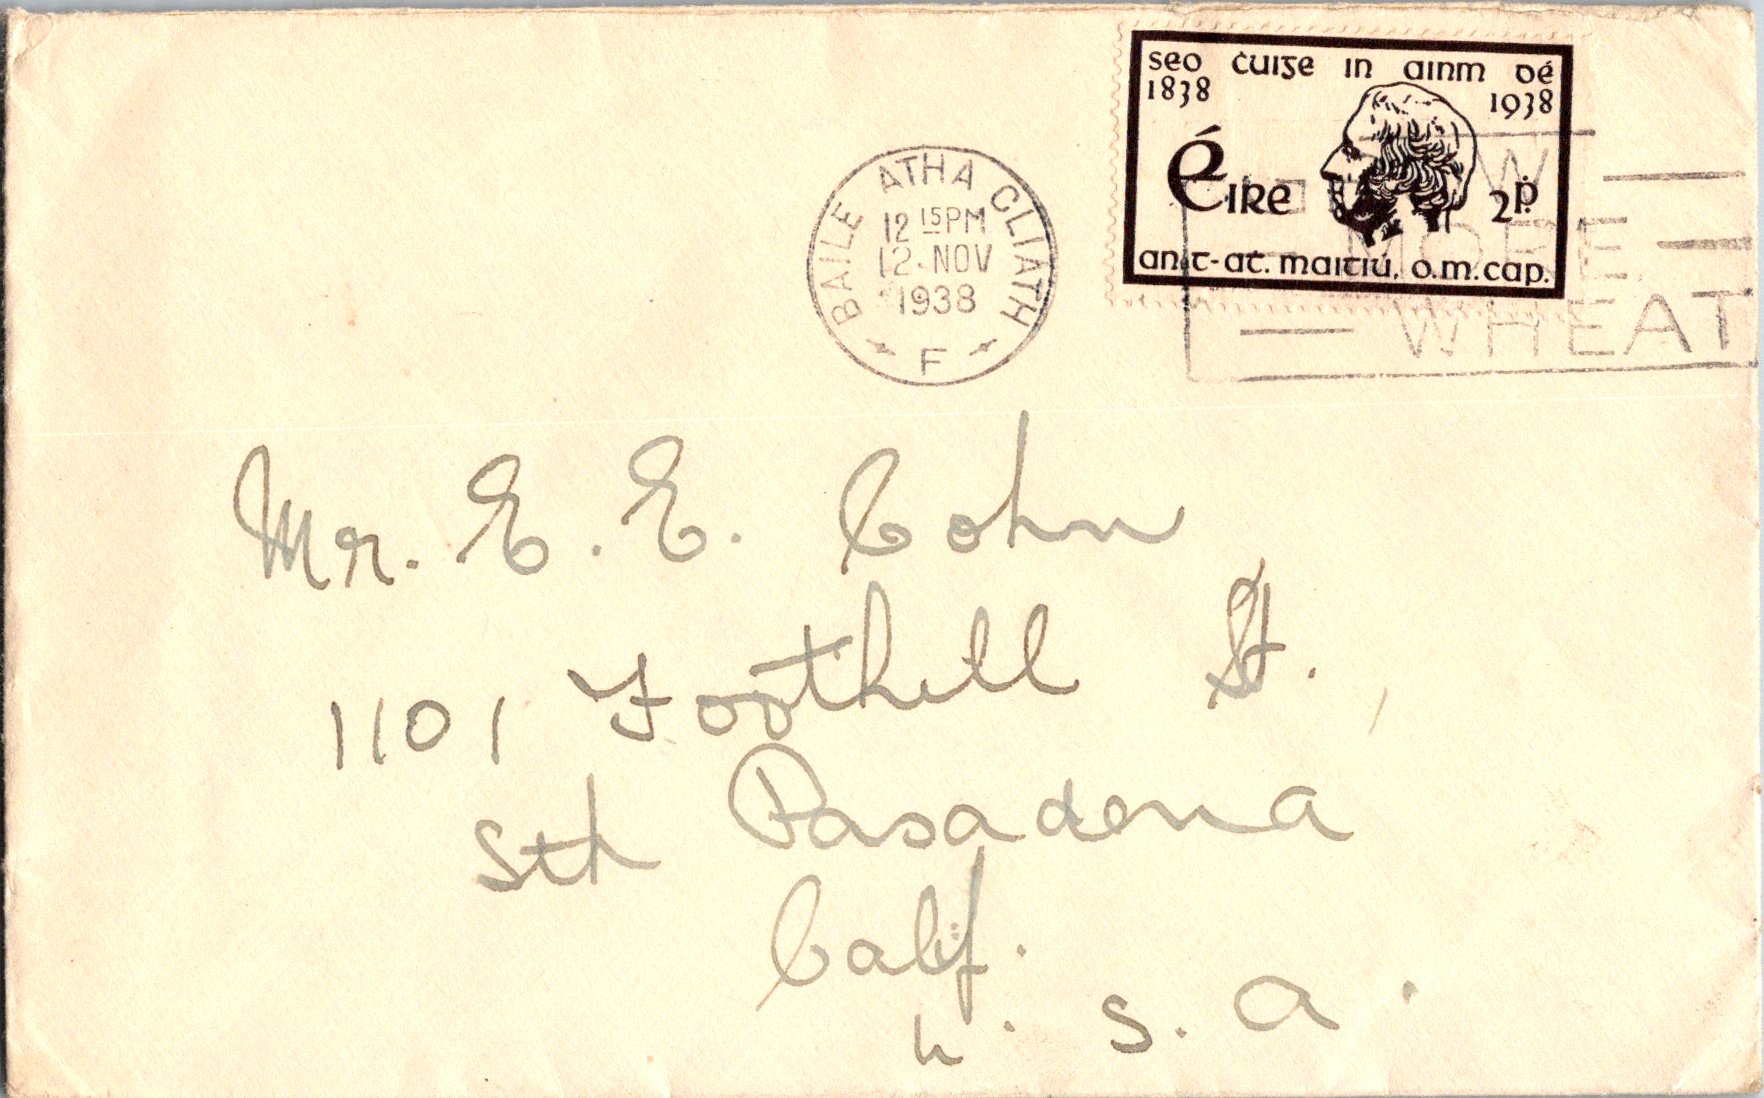 seo ċuige in ainm dé
1838 1938
Éire 2p
an t-at. maitiú, o.m.cap.
BAILE ATHA CLIATH
12 15PM
12 NOV
1938
F
MORE
WHEAT
Mr. E. E. Cohn
1101 Foothill St.
Sth Pasadena
Calif.
U. S. A.